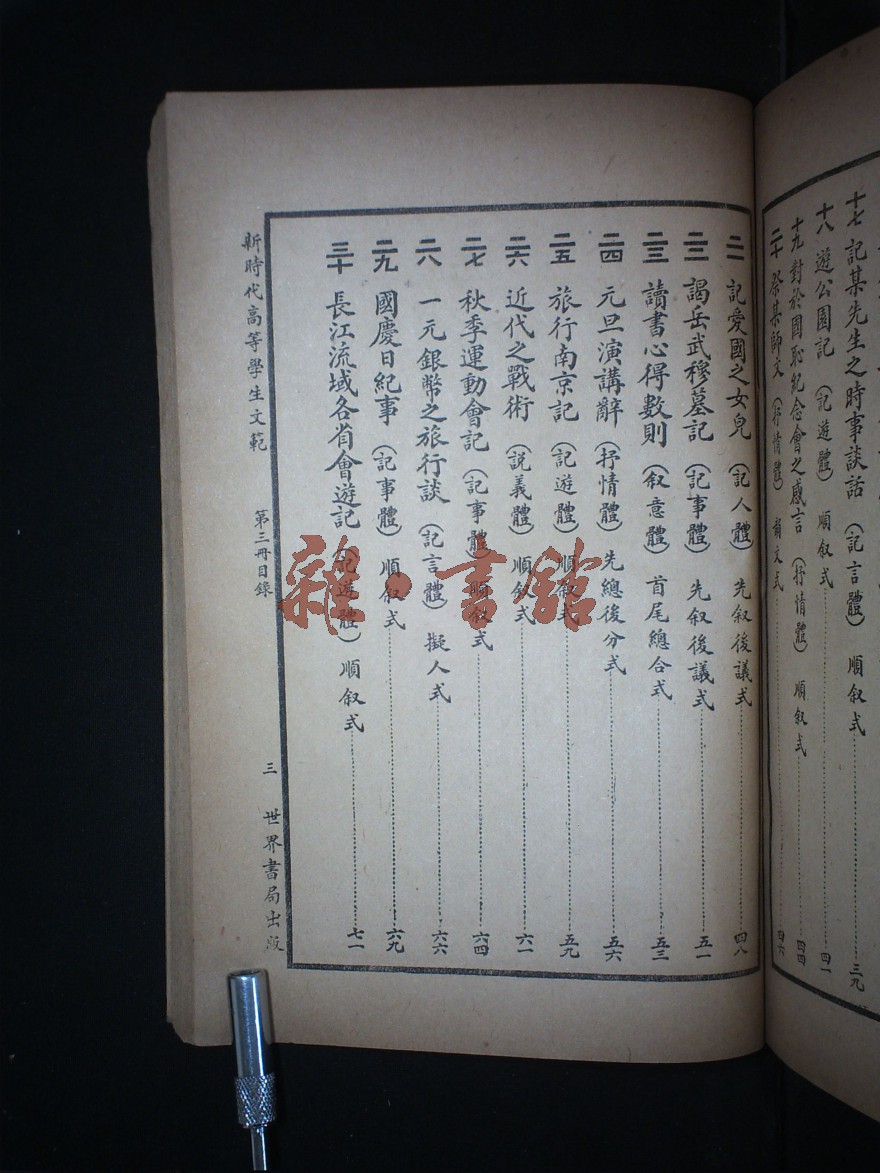 十七 記某先生之時事談話 （記言體） 順叙式 三九
十八 遊公園記 （記遊體） 順叙式 四一
十九 對於國恥紀念會之感言 （抒情體） 順叙式 四四
二十 祭某師文 （抒情體） 韻文式 四六
二一 記愛國之女兒 （記人體） 先叙後議式 四八
二二 謁岳武穆墓記 （記事體） 先叙後議式 五一
二三 讀書心得數則 （叙意體） 首尾總合式 五三
二四 元旦演講辭 （抒情體） 先總後分式 五六
二五 旅行南京記 （記遊體） 順叙式 五九
二六 近代之戰術 （説義體） 順叙式 六一
二七 秋季運動會記 （記事體） 順叙式 六四
二八 一元銀幣之旅行談 （記言體） 擬人式 六六
二九 國慶日紀事 （記事體） 順叙式 六九
三十 長江流域各省會遊記 （記遊體） 順叙式 七一
新時代高等學生文範 第三冊目錄 三 世界書局出版
雜·書館